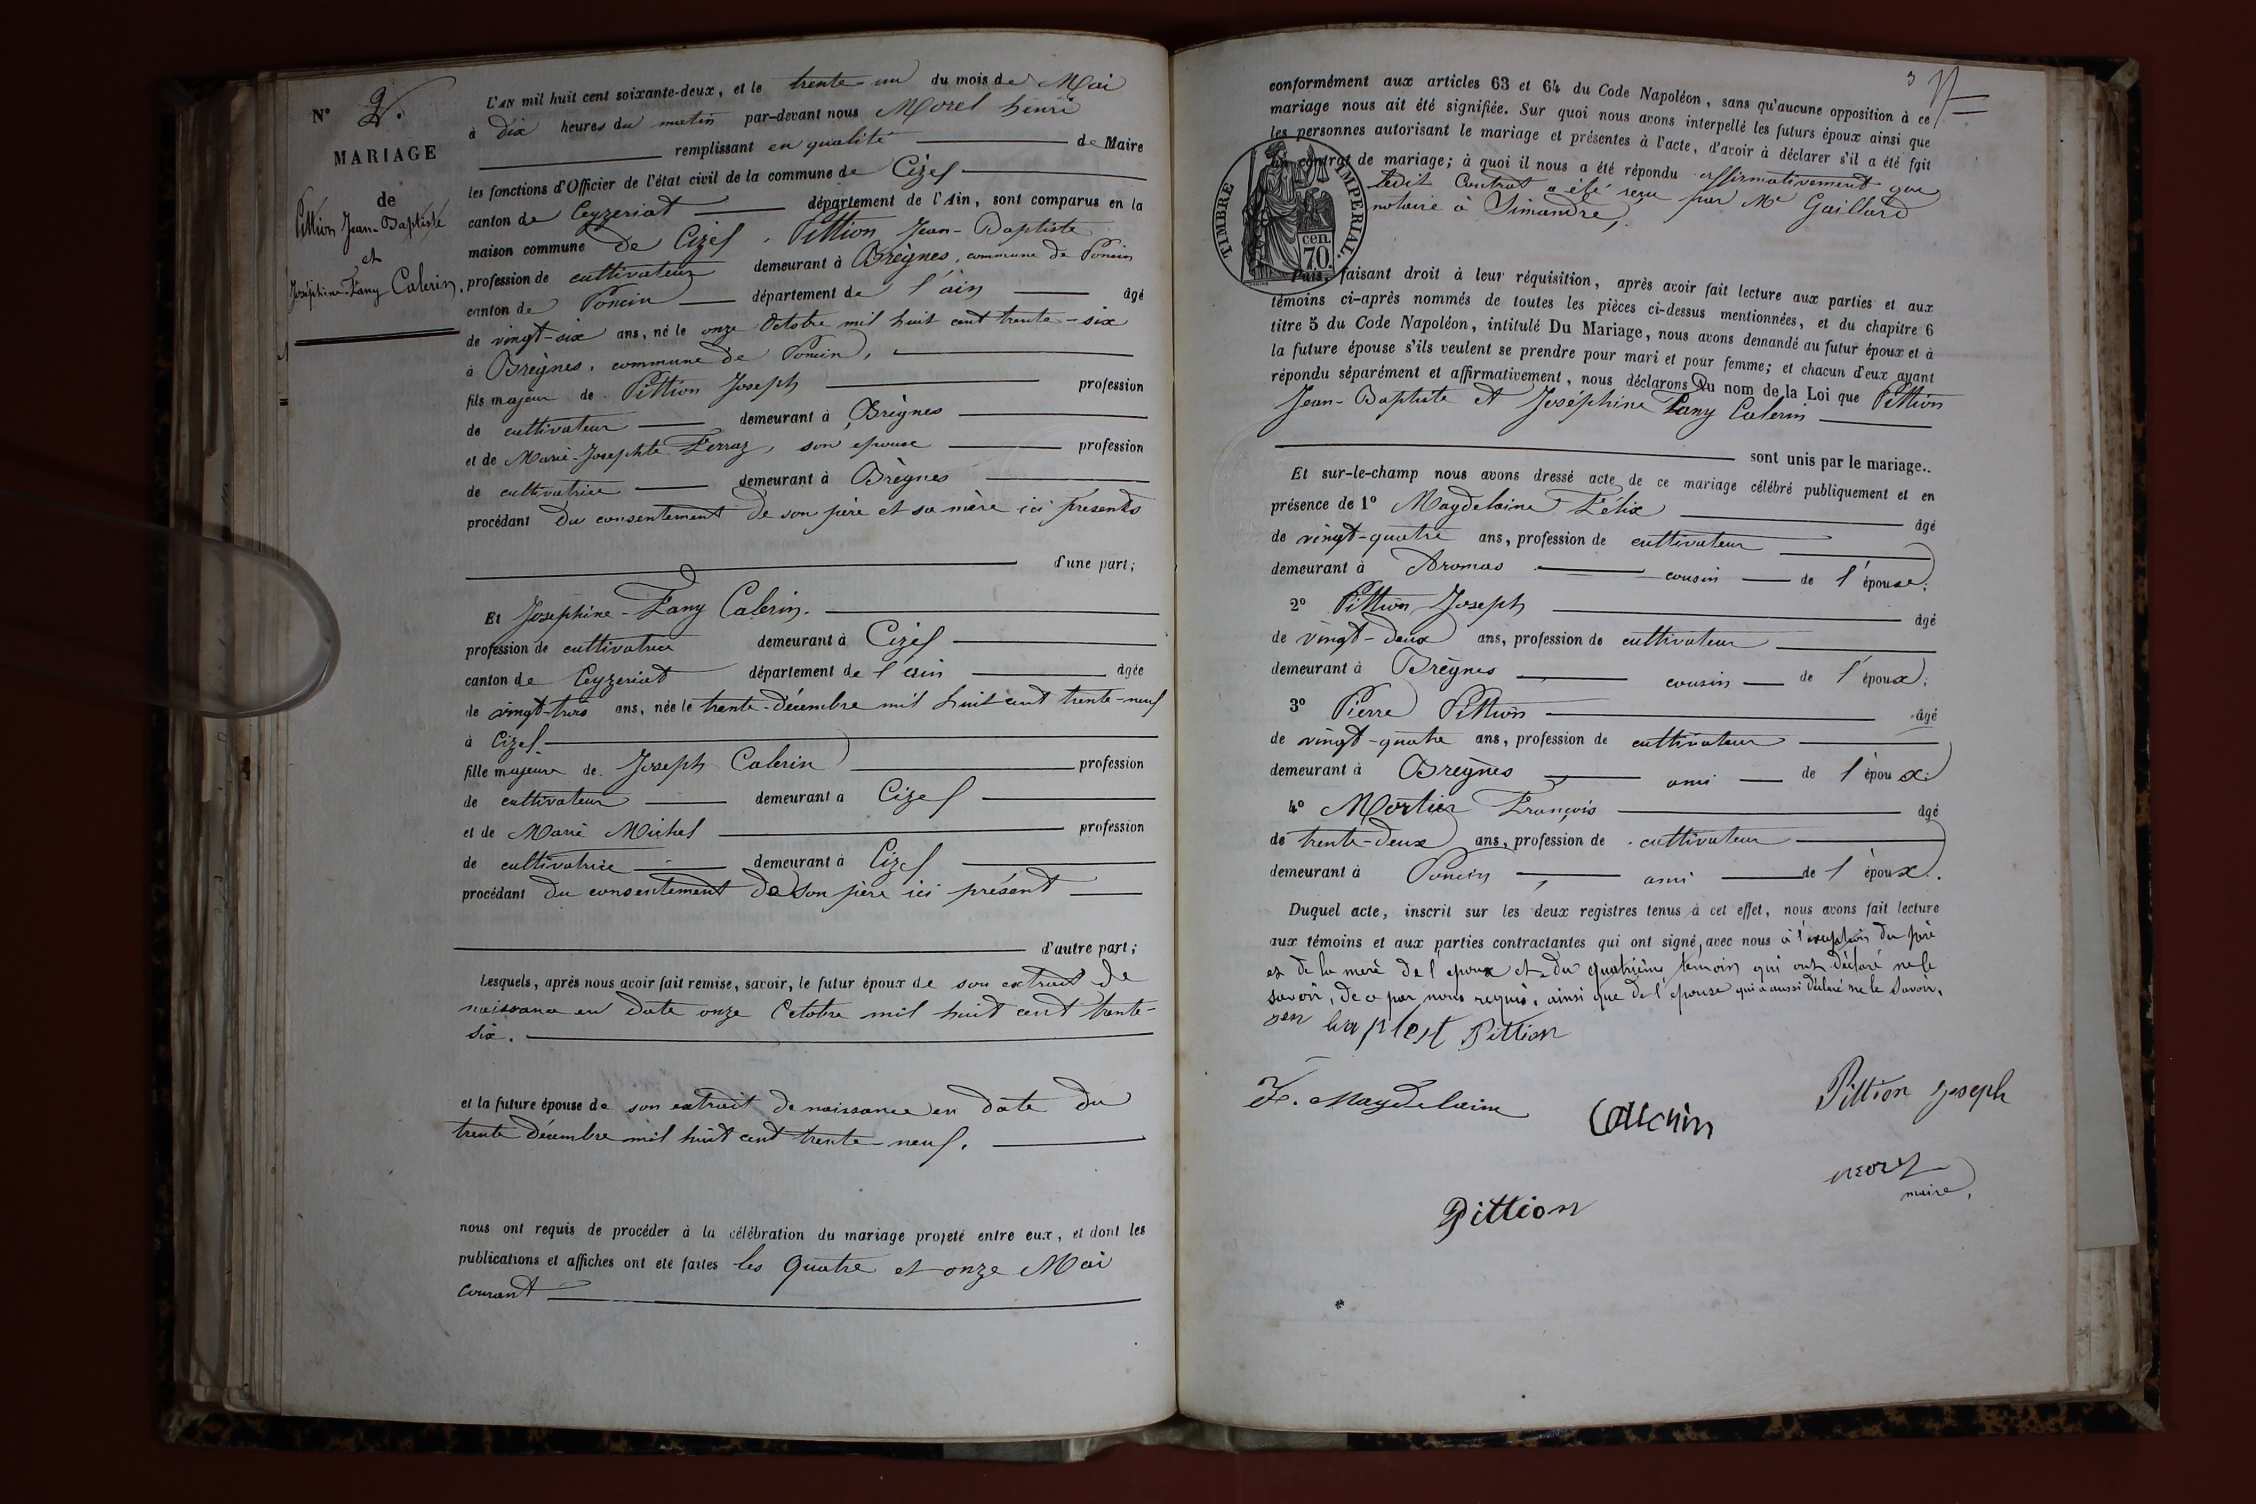 N° 2.
MARIAGE
de
Pittion Jean-Baptiste
et
Joséphine-Fany Calerin.
L'AN mil huit cent soixante-deux, et le trente un du mois de Mai
à dix heures du matin par-devant nous Morel henri
remplissant en qualité de Maire
les fonctions d'Officier de l'état civil de la commune de Cizes
canton de Ceyzeriat département de l'Ain, sont comparus en la
maison commune de Cizes. Pittion Jean-Baptiste
profession de cultivateur demeurant à Brègnes, commune de Poncin
canton de Poncin département de l'ain âgé
de vingt-six ans, né le onze Octobre mil huit cent trente-six
à Brègnes, commune de Poncin,
fils majeur de Pittion Joseph profession
de cultivateur demeurant à Brègnes
et de Marie-Josephte Ferraz, son epouse profession
de cultivatrice demeurant à Brègnes
procédant du consentement de son père et sa mère ici présents
d'une part;
Et Joséphine-Fany Calerin.
profession de cultivatrice demeurant à Cizes
canton de Ceyzeriat département de l'ain âgée
de vingt-trois ans, née le trente-décembre mil huit cent trente-neuf
à Cizes
fille majeure de Joseph Calerin profession
de cultivateur demeurant à Cizes
et de Marie Michel profession
de cultivatrice demeurant à Cizes
procédant du consentement de son père ici présent
d'autre part;
Lesquels, après nous avoir fait remise, savoir, le futur époux de son extrait de
naissance en date onze Octobre mil huit cent trente-
six.
et la future épouse de son extrait de naissance en date du
trente décembre mil huit cent trente-neuf.
nous ont requis de procéder à la célébration du mariage projeté entre eux, et dont les
publications et affiches ont été faites les quatre et onze Mai
courant
3
conformément aux articles 63 et 64 du Code Napoléon, sans qu'aucune opposition à ce
mariage nous ait été signifiée. Sur quoi nous avons interpellé les futurs époux ainsi que
les personnes autorisant le mariage et présentes à l'acte, d'avoir à déclarer s'il a été fait
un contrat de mariage; à quoi il nous a été répondu affirmativement que
ledit Contrat a été reçu par Me Gaillard
notaire à Simandre,
TIMBRE IMPERIAL.
cen.
70.
Puis, faisant droit à leur réquisition, après avoir fait lecture aux parties et aux
témoins ci-après nommés de toutes les pièces ci-dessus mentionnées, et du chapitre 6
titre 5 du Code Napoléon, intitulé Du Mariage, nous avons demandé au futur époux et à
la future épouse s'ils veulent se prendre pour mari et pour femme; et chacun d'eux ayant
répondu séparément et affirmativement, nous déclarons au nom de la Loi que Pittion
Jean-Baptiste et Joséphine Fany Calerin
sont unis par le mariage..
Et sur-le-champ nous avons dressé acte de ce mariage célébré publiquement et en
présence de 1° Magdelaine Félix âgé
de vingt-quatre ans, profession de cultivateur
demeurant à Aromas cousin de l'épouse;
2° Pittion Joseph âgé
de vingt-deux ans, profession de cultivateur
demeurant à Brègnes cousin de l'époux;
3° Pierre Pittion âgé
de vingt-quatre ans, profession de cultivateur
demeurant à Brègnes ami de l'époux;
4° Mortier François âgé
de trente-deux ans, profession de cultivateur
demeurant à Poncin, ami de l'époux.
Duquel acte, inscrit sur les deux registres tenus à cet effet, nous avons fait lecture
aux témoins et aux parties contractantes qui ont signé, avec nous à l'exeption du père
et de la mère de l'epoux et du quatrième témoin qui ont déclaré ne le
savoir, de ce par nous requis, ainsi que de l'epouse qui a aussi déclaré ne le savoir.
Pittion
F. Magdelaine
Pittion Joseph
morel
maire,
Pittion